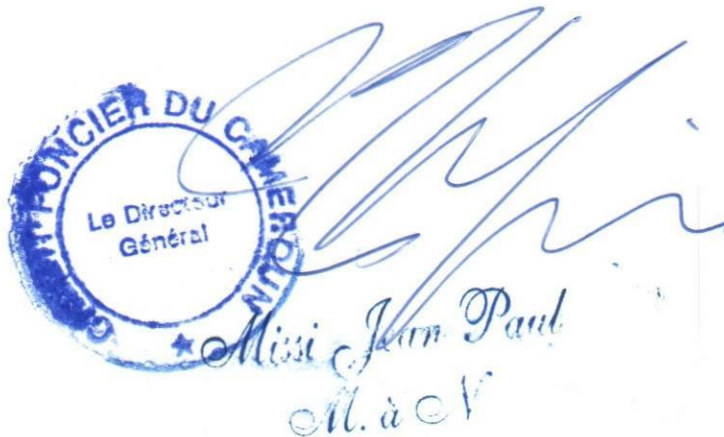 CRÉDIT FONCIER DU CAMEROUN
Le Directeur
Général
Missi Jean Paul
M. à N